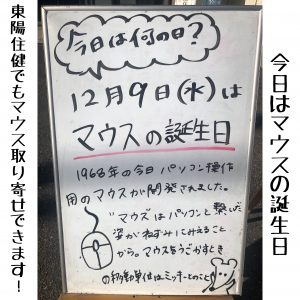 今日はマウスの誕生日
今日は何の日?
12月9日(水)は
マウスの誕生日
1968年の今日パソコン操作
用のマウスが開発されました。
"マウス"はパソコンと繋いだ
姿がねずみにみえること
から。マウスをうごかすとき
の移動の単位はミッキーとのこと
東陽住健でもマウス取り寄せできます!